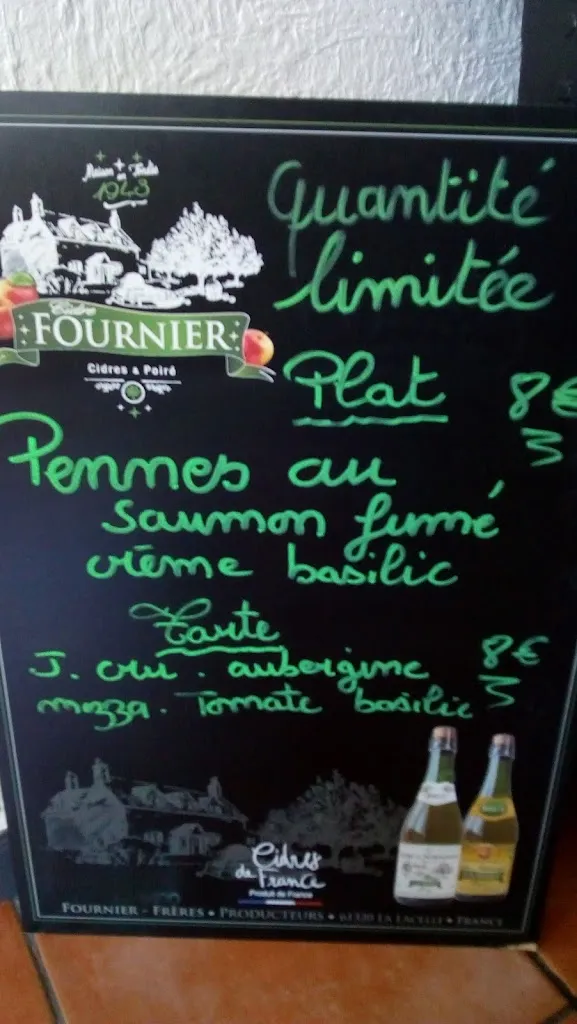 Maison Fondée
en
1943
Quantité
limitée
Cidre
FOURNIER
Cidres & Poiré
Plat 8€
Pennes au
saumon fumé
crème basilic
Tarte
J. cru . aubergine 8€
mozza . Tomate basilic
Cidres
de France
Produit de France
FOURNIER - FRÈRES • PRODUCTEURS • 61320 LA LACELLE • FRANCE